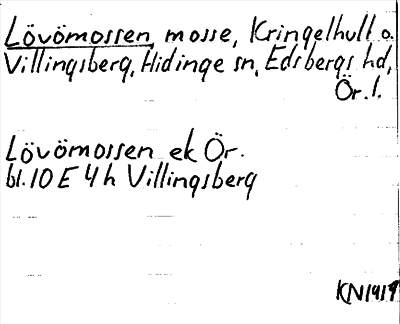 Lövömossen, mosse, Kringelhult o.
Villingsberg, Hidinge sn, Edsbergs hd,
Ör. l.
Lövömossen ek Ör.
bl. 10 E 4 h Villingsberg